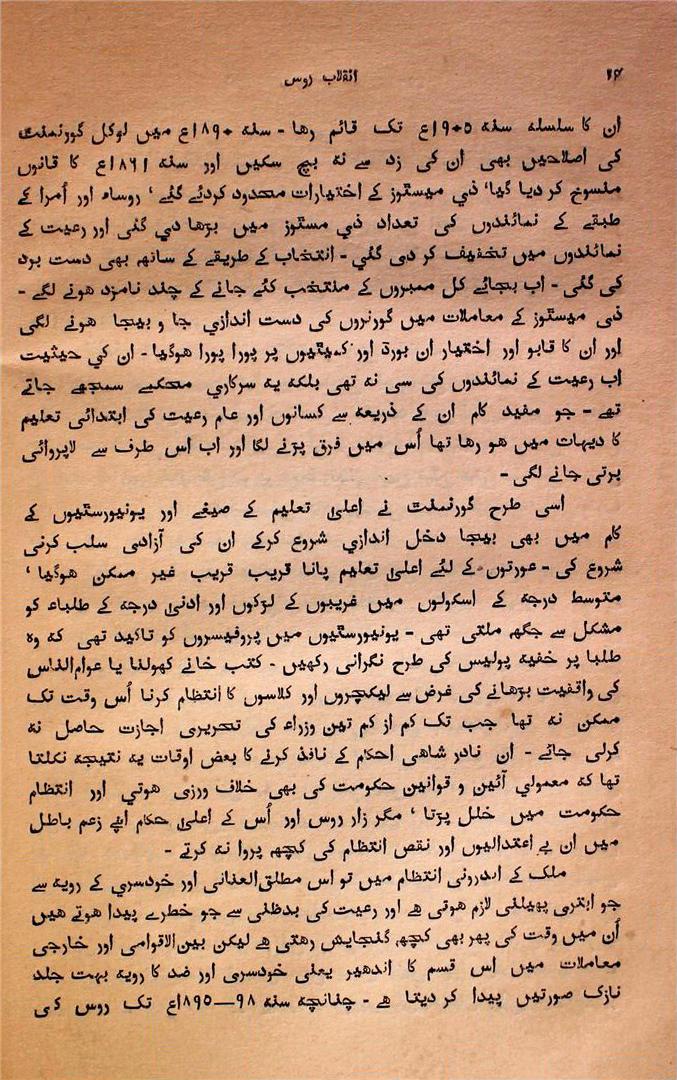 ۱۴ انقلاب روس
ان کا سلسلہ سنہ ۱۹۰۵ع تک قائم رھا - سنہ ۱۸۹۰ع میں لوکل گورنمنٹ
کی اصلاحیں بھی ان کی زد سے نہ بچ سکیں اور سنہ ۱۸۶۱ع کا قانون
منسوخ کر دیا گیا، ذی میستوز کے اختیارات محدود کردئے گئے، روساء اور اُمرا کے
طبقے کے نمائندوں کی تعداد ذی مستوز میں بڑھا دی گئی اور رعیت کے
نمائندوں میں تخفیف کر دی گئی - انتخاب کے طریقے کے ساتھ بھی دست برد
کی گئی - اب بجائے کل ممبروں کے منتخب کئے جانے کے چند نامزد ھونے لگے -
ذی میستوز کے معاملات میں گورنروں کی دست اندازی جا و بیجا ھونے لگی
اور ان کا قابو اور اختیار ان بورڈ اور کمیٹیوں پر پورا پورا ھوگیا - ان کی حیثیت
اب رعیت کے نمائندوں کی سی نہ تھی بلکہ یہ سرکاری محکمے سمجھے جاتے
تھے - جو مفید کام ان کے ذریعہ سے کسانوں اور عام رعیت کی ابتدائی تعلیم
کا دیہات میں ھو رھا تھا اُس میں فرق پڑنے لگا اور اب اس طرف سے لاپروائی
برتی جانے لگی -
اسی طرح گورنمنٹ نے اعلیٰ تعلیم کے صیغے اور یونیورسٹیوں کے
کام میں بھی بیجا دخل اندازی شروع کرکے ان کی آزادی سلب کرنی
شروع کی - عورتوں کے لئے اعلیٰ تعلیم پانا قریب قریب غیر ممکن ھوگیا،
متوسط درجہ کے اسکولوں میں غریبوں کے لڑکوں اور ادنیٰ درجہ کے طلباء کو
مشکل سے جگھ ملتی تھی - یونیورسٹیوں میں پروفیسروں کو تاکید تھی کہ وہ
طلبا پر خفیہ پولیس کی طرح نگرانی رکھیں - کتب خانے کھولنا یا عوام الناس
کی واقفیت بڑھانے کی غرض سے لیکچروں اور کلاسوں کا انتظام کرنا اُس وقت تک
ممکن نہ تھا جب تک کم از کم تین وزراء کی تحریری اجازت حاصل نہ
کرلی جائے - ان نادر شاھی احکام کے نافذ کرنے کا بعض اوقات یہ نتیجہ نکلتا
تھا کہ معمولی آئین و قوانین حکومت کی بھی خلاف ورزی ھوتی اور انتظام
حکومت میں خلل پڑتا، مگر زار روس اور اُس کے اعلیٰ حکام اپنے زعم باطل
میں ان بے اعتدالیوں اور نقص انتظام کی کچھ پروا نہ کرتے -
ملک کے اندرونی انتظام میں تو اس مطلق العنانی اور خودسری کے رویہ سے
جو ابتری پھیلنی لازم ھوتی ھے اور رعیت کی بدظنی سے جو خطرے پیدا ھوتے ھیں
اُن میں وقت کی پھر بھی کچھ گنجایش رھتی ھے لیکن بین الاقوامی اور خارجی
معاملات میں اس قسم کا اندھیر یعنی خودسری اور ضد کا رویہ بہت جلد
نازک صورتیں پیدا کر دیتا ھے - چنانچہ سنہ ۹۸—۱۸۹۵ع تک روس کی